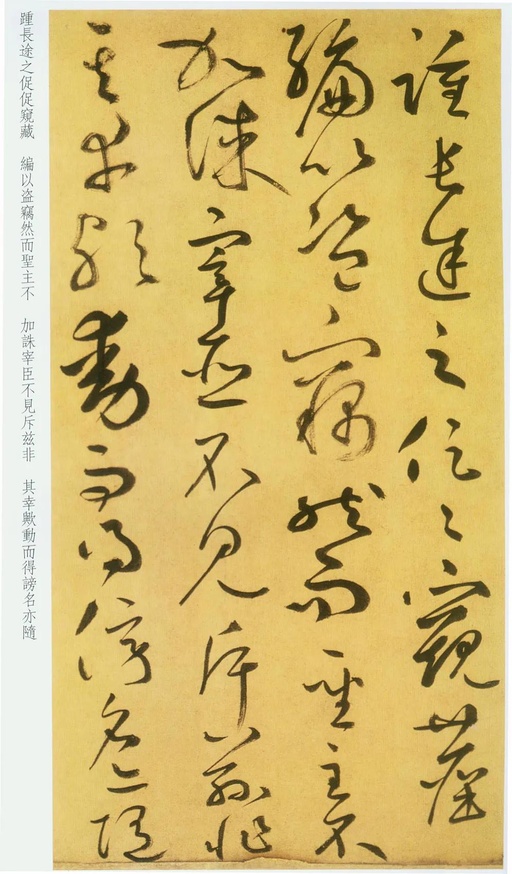 踵長途之促〻窺藏
編以盗竊然而聖主不
加誅宰臣不見斥兹非
其幸歟動而得謗名亦隨
踵長途之促促窺藏 編以盗竊然而聖主不 加誅宰臣不見斥兹非 其幸歟動而得謗名亦隨